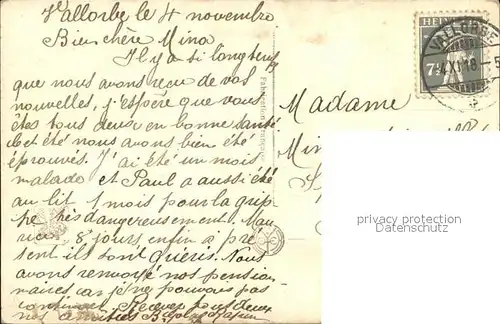 Vallorbe le 4 novembre
Bien chère Mina
Il y a si longtemps
que nous avons reçu de vos
nouvelles, j'espère que vous
êtes tous deux en bonne santé
et été nous avons bien été
éprouvés. J'ai été un mois
malade et Paul a aussi été
au lit 1 mois pour la grip
pe très dangereusement. Mau
rice, 8 jours, enfin à pré
sent ils sont guéris. Nous
avons renvoyé nos pension
naires car je ne pouvais pas
continuer. Recevez tous deux
nos amitiés
HELVETIA
7½
VALLORBE
4 XI 18 - 5
Madame
privacy protection
Datenschutz